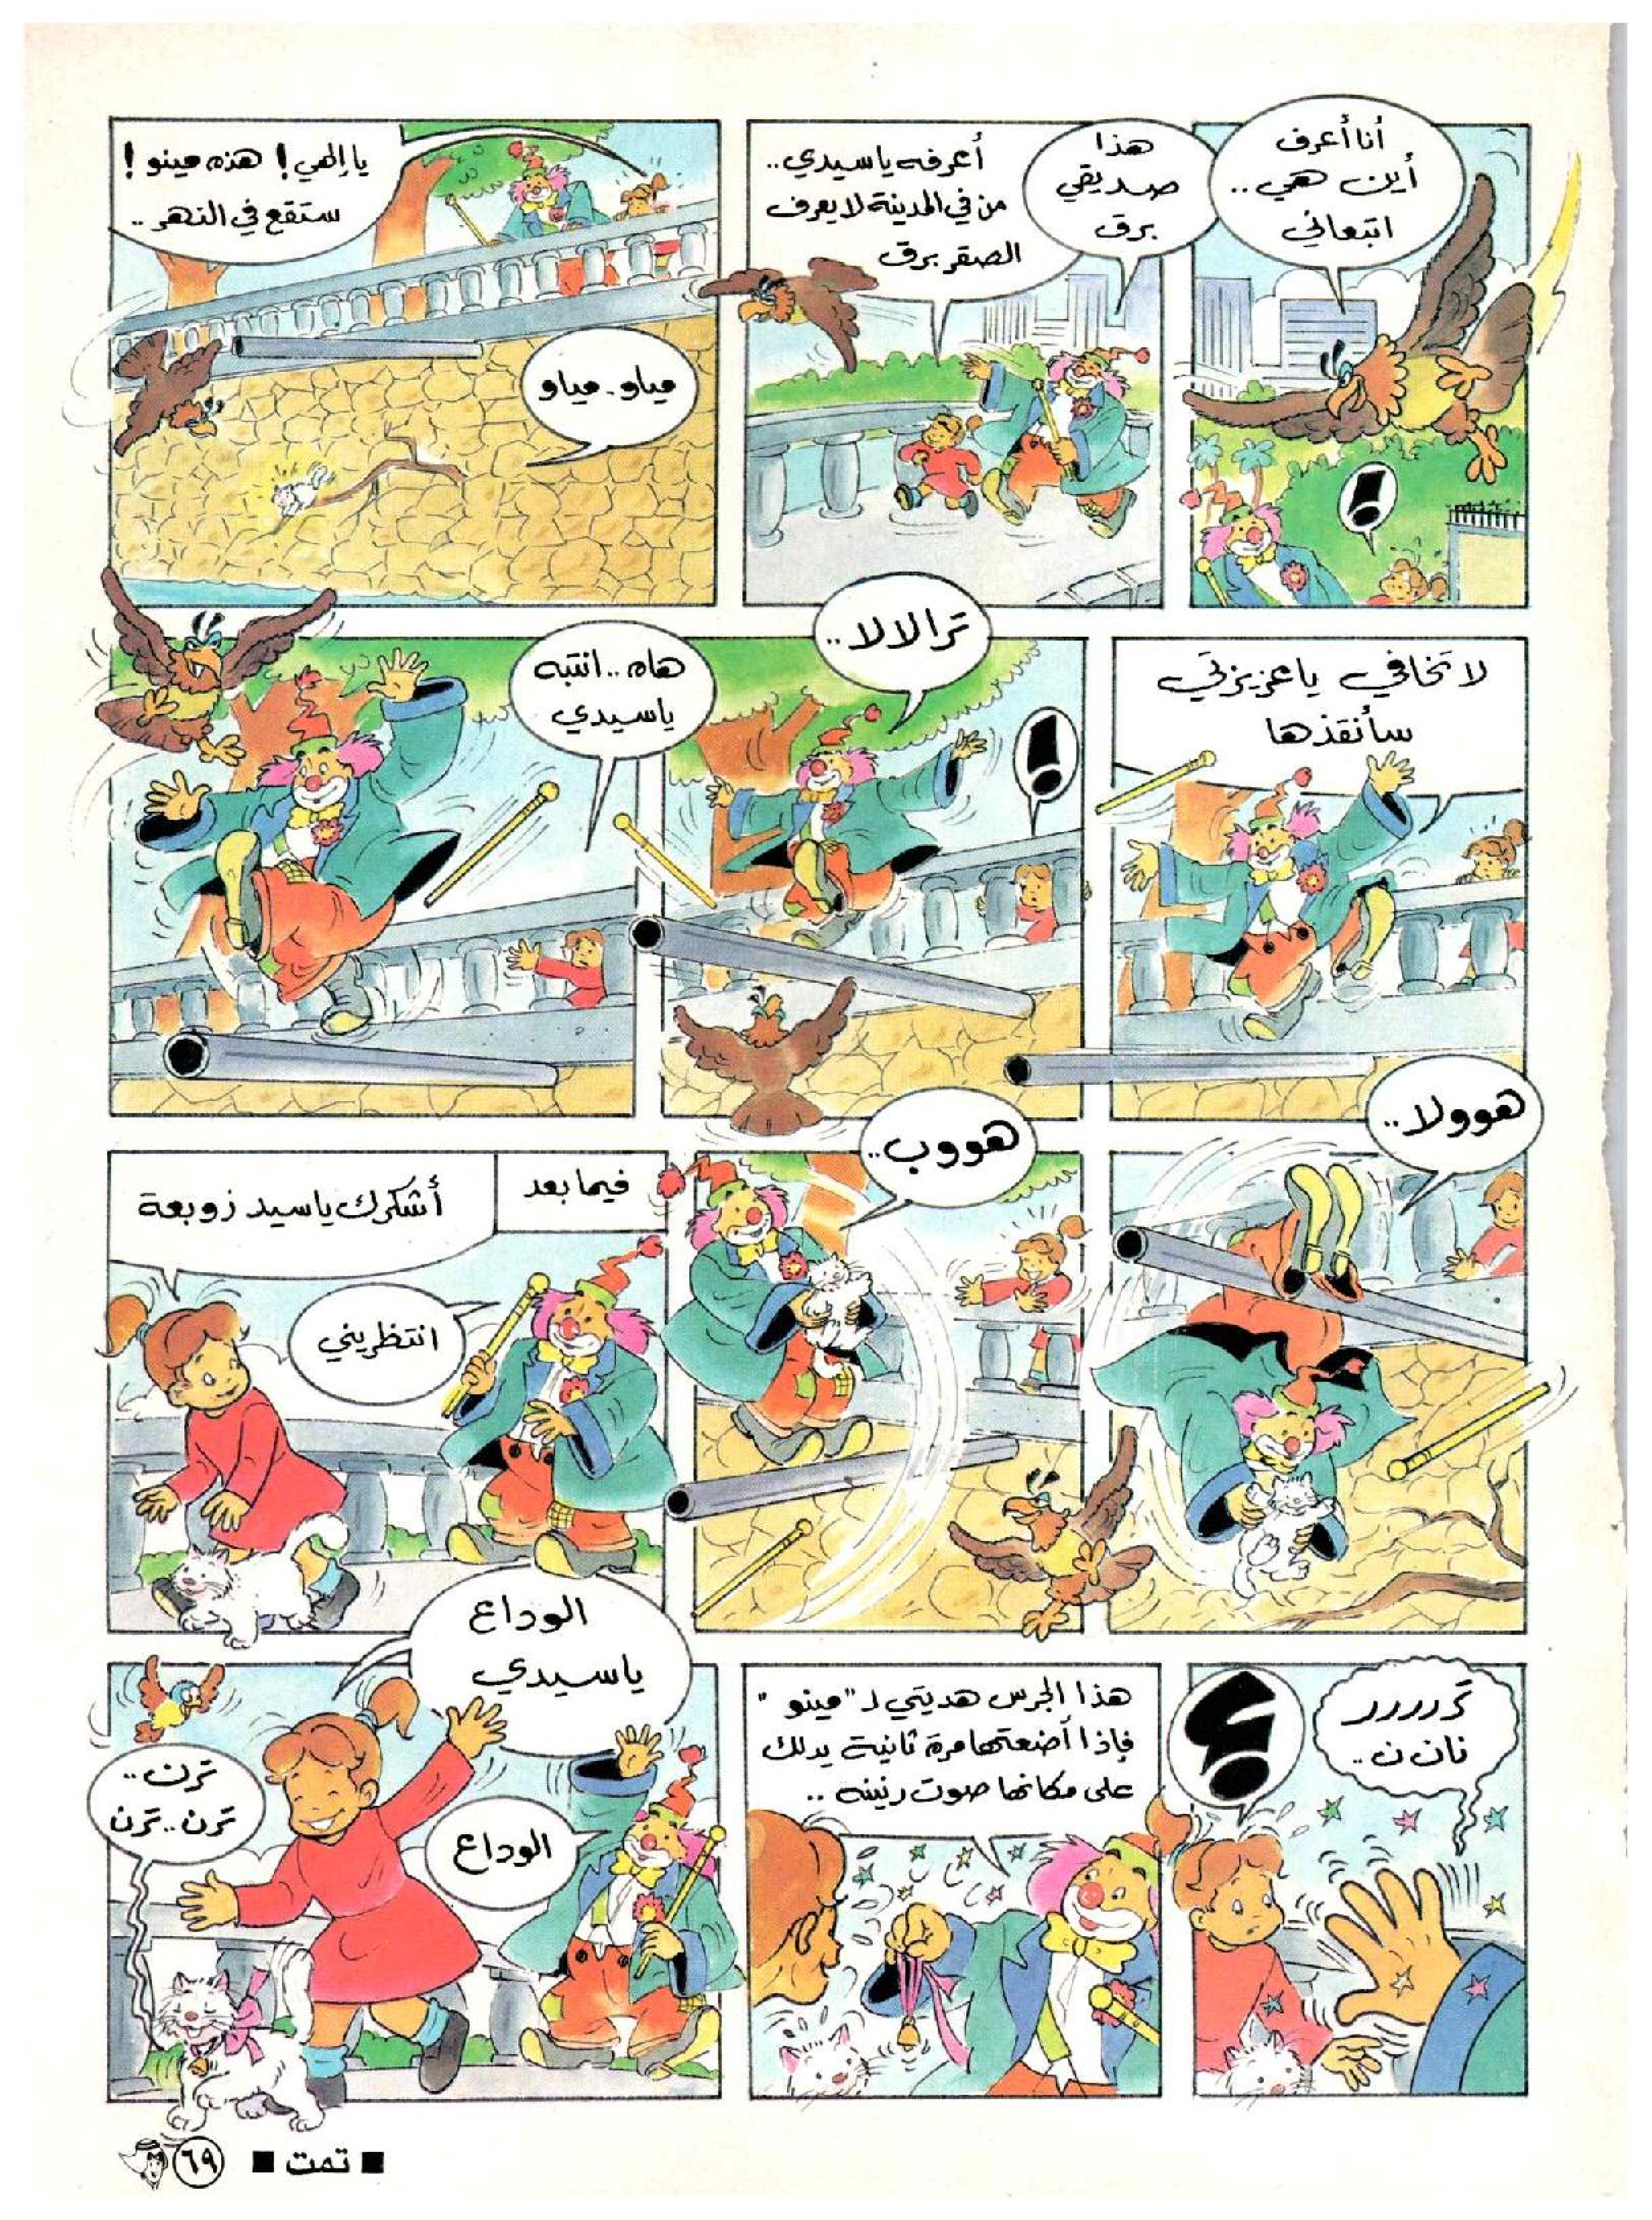 أنا أعرف
أين هي..
اتبعاني
!
هذا
صديقي
برق
أعرفه يا سيدي..
من في المدينة لا يعرف
الصقر برق
يا إلهي! هذه مينو!
ستقع في النهر..
مياو.. مياو
لا تخافي يا عزيزتي
سأنقذها
ترالالا..
!
هاه.. انتبه
يا سيدي
هوولا..
هووب..
فيما بعد
أشكرك يا سيد زوبعة
انتظريني
تررررر
نان ن..
؟
هذا الجرس هديتي لـ "مينو"
فإذا أضعتها مرة ثانية يدلك
على مكانها صوت رنينه..
الوداع
يا سيدي
الوداع
ترن..
ترن.. ترن
■ تمت ■
٦٩